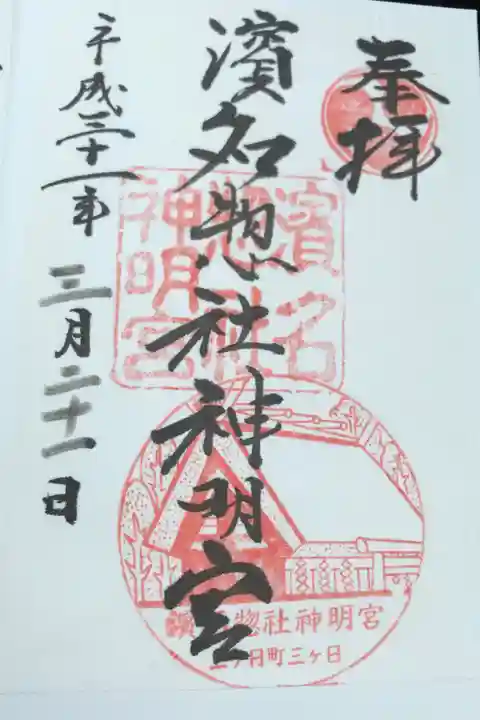 奉拝
濱名惣社神明宮
平成三十一年
三月二十一日
濱名
惣社
神明宮
濱名惣社神明宮
三ヶ日町三ヶ日